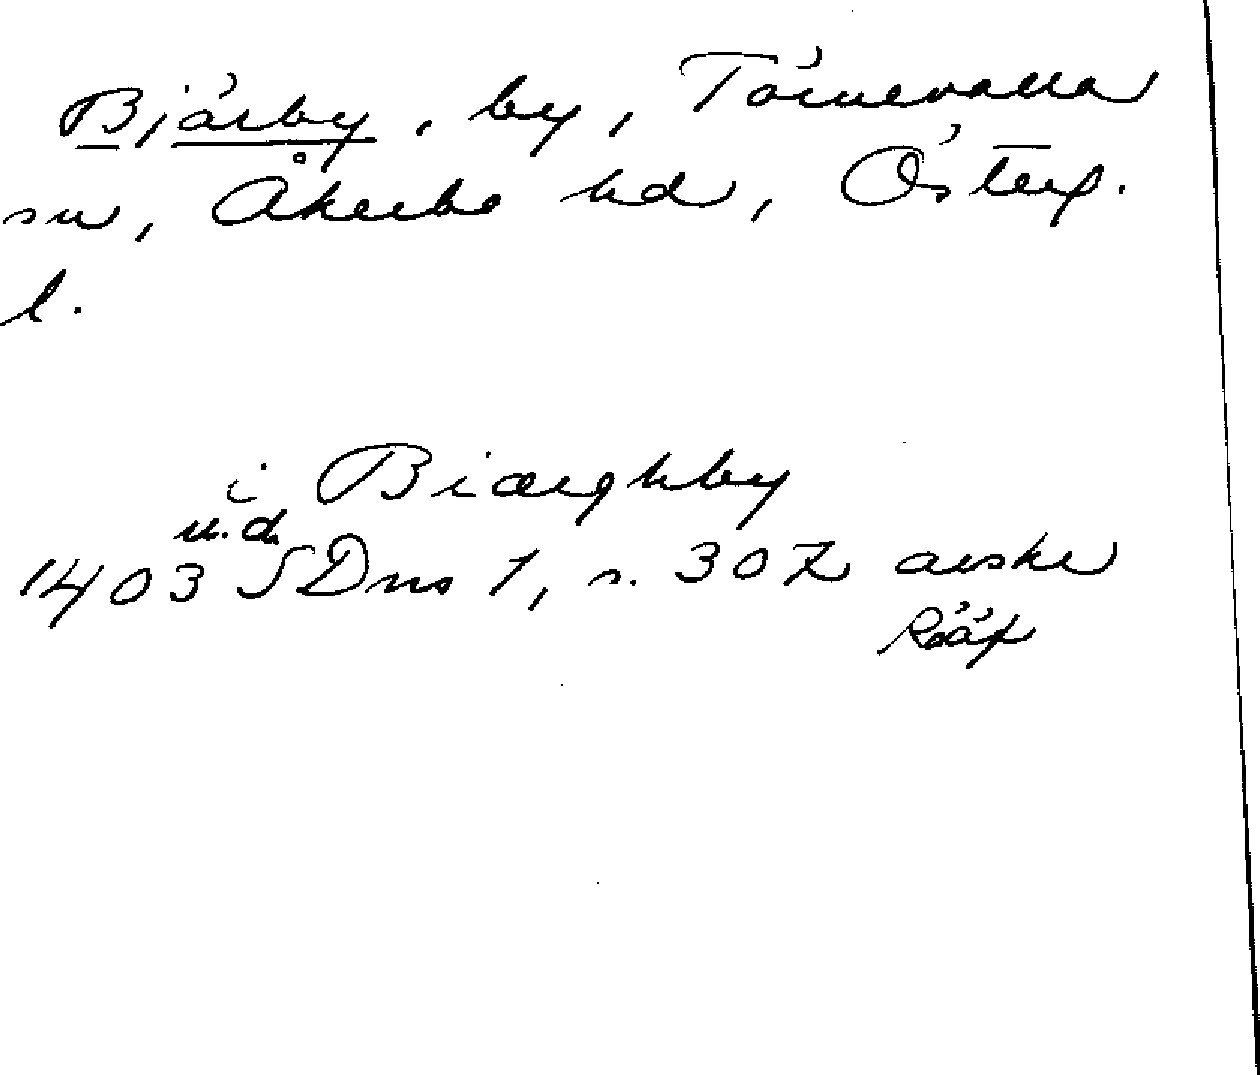 Bjärby, by, Törnevalla
sn, Åkerbo hd, Österg.
l.
i Biærghby
u.d.
1403 SDns 1, s. 307 avskr
RAÄp